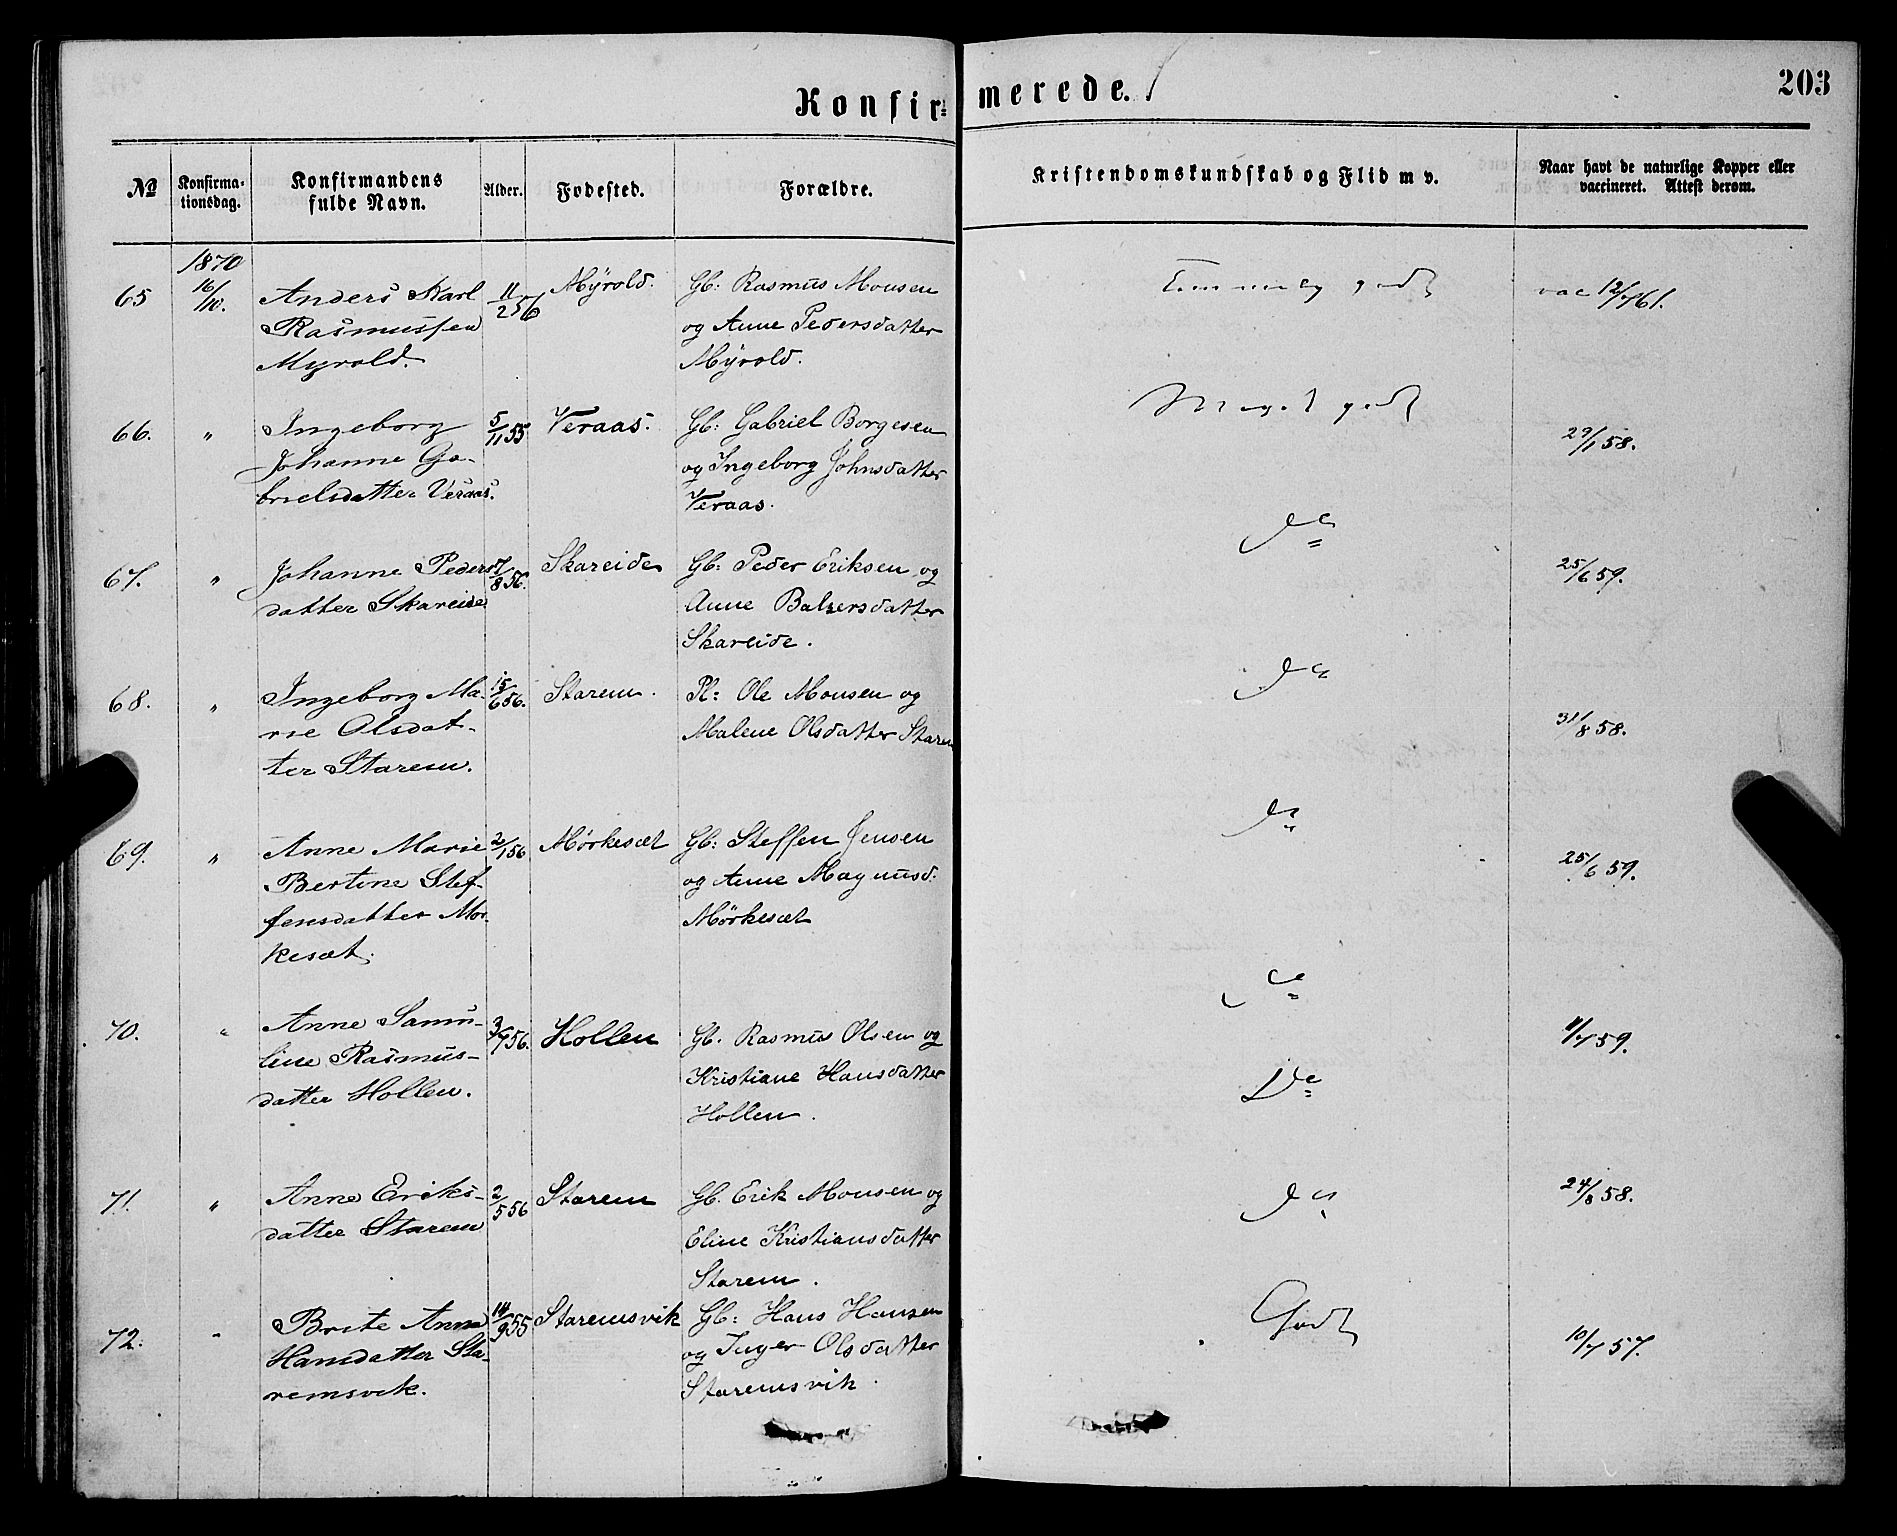 Konfirmerede.
203
No
Konfirma-
tionsdag.
Konfirmandens
fulde Navn.
Alder.
Fødested.
Forældre.
Kristendomskundskab og Flid m v.
Naar havt de naturlige Kopper eller
vaccineret. Attest derom.
1870
65 16/10. Anders Karl 11/2 56 Myrold. Gb: Rasmus Monsen godt vac 12/7 61.
Rasmussen og Anne Pedersdatter
Myrold. Myrold.
66. " Ingeborg 5/11 55 Veraas. Gb: Gabriel Borgesen Meget godt 29/1 58.
Johanne Ga- og Ingeborg Johnsdatter
brielsdatter Veraas. Veraas.
67. " Johanne Peders 7/8 56. Skareide Gb: Peder Eriksen og do 25/6 59.
datter Skareide Anne Balzersdatter
Skareide.
68. " Ingeborg Ma- 15/6 56. Starem. Pl: Ole Monsen og do 31/8 58.
rie Olsdat- Malene Olsdatter Starem
ter Starem.
69. " Anne Marie 2/1 56 Mörkesæt Gb: Steffen Jensen do 25/6 59.
Bertine Stef- og Anne Magnusd.
fensdatter Mör- Mörkesæt
kesæt.
70. " Anne Samu- 3/7 56. Hollen Gb. Rasmus Olsen og do /7 59.
line Rasmus- Kristiane Hansdatter
datter Hollen. Hollen. Do
71. " Anne Eriks- 2/5 56 Starem Gb. Erik Monsen og do 24/8 58.
datter Starem Eline Kristiansdatter
Starem.
72. " Brite Anna 14/9 55 Staremsvik Gb: Hans Hansen Godt 10/7 57.
Hansdatter Sta- og Inger Olsdatter
remsvik. Staremsvik.